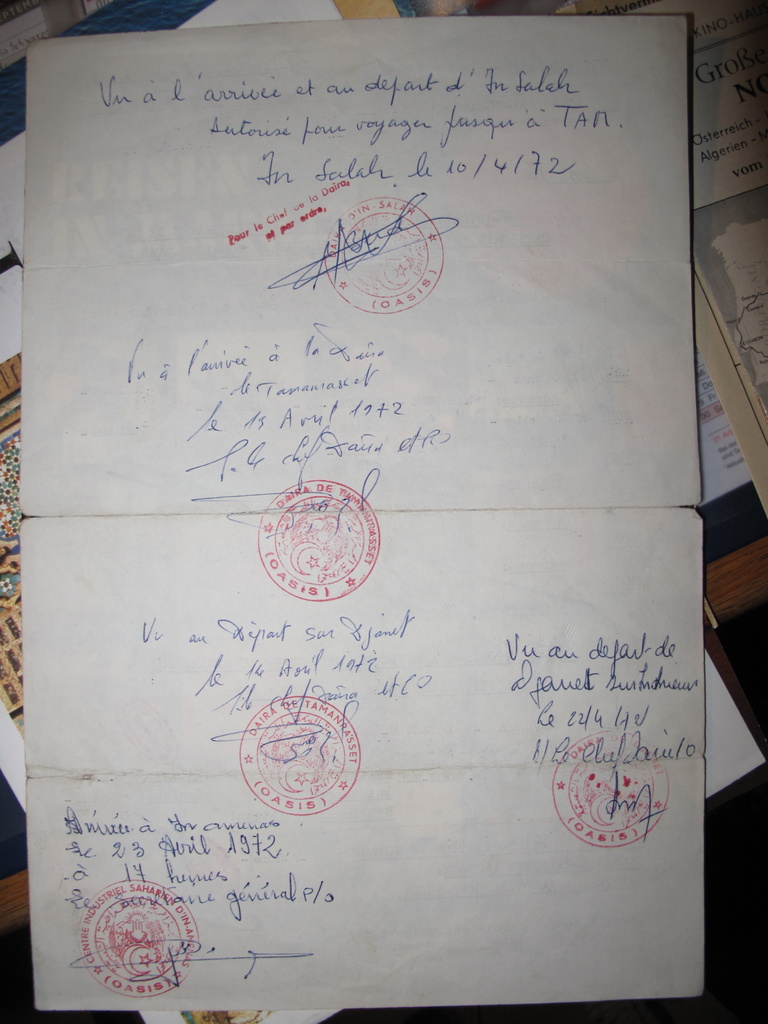 Vu à l'arrivée et au départ d'In Salah
Autorisé pour voyager jusqu'à TAM.
In Salah le 10/4/72
Pour le Chef de la Daïra,
et par ordre,
DAIRA D'IN-SALAH
(OASIS)
Vu à l'arrivée à la Daïra
de Tamanrasset
le 13 Avril 1972
P. le chef Daïra et PO
DAIRA DE TAMANRASSET
(OASIS)
Vu au Départ sur Djanet
le 14 Avril 1972
P. le chef Daïra et PO
DAIRA DE TAMANRASSET
(OASIS)
Vu au depart de
Djanet sur
le 22/4/72
P/ Le Chef Daira P/O
DAIRA
(OASIS)
Arrivée à In amenas
Le 23 Avril 1972
à 17 heures
Le Secrétaire général P/O
CENTRE INDUSTRIEL SAHARIEN D'IN-AMENAS
(OASIS)
KINO-HAUS
Große
NO
Österreich -
Algerien - M
vom